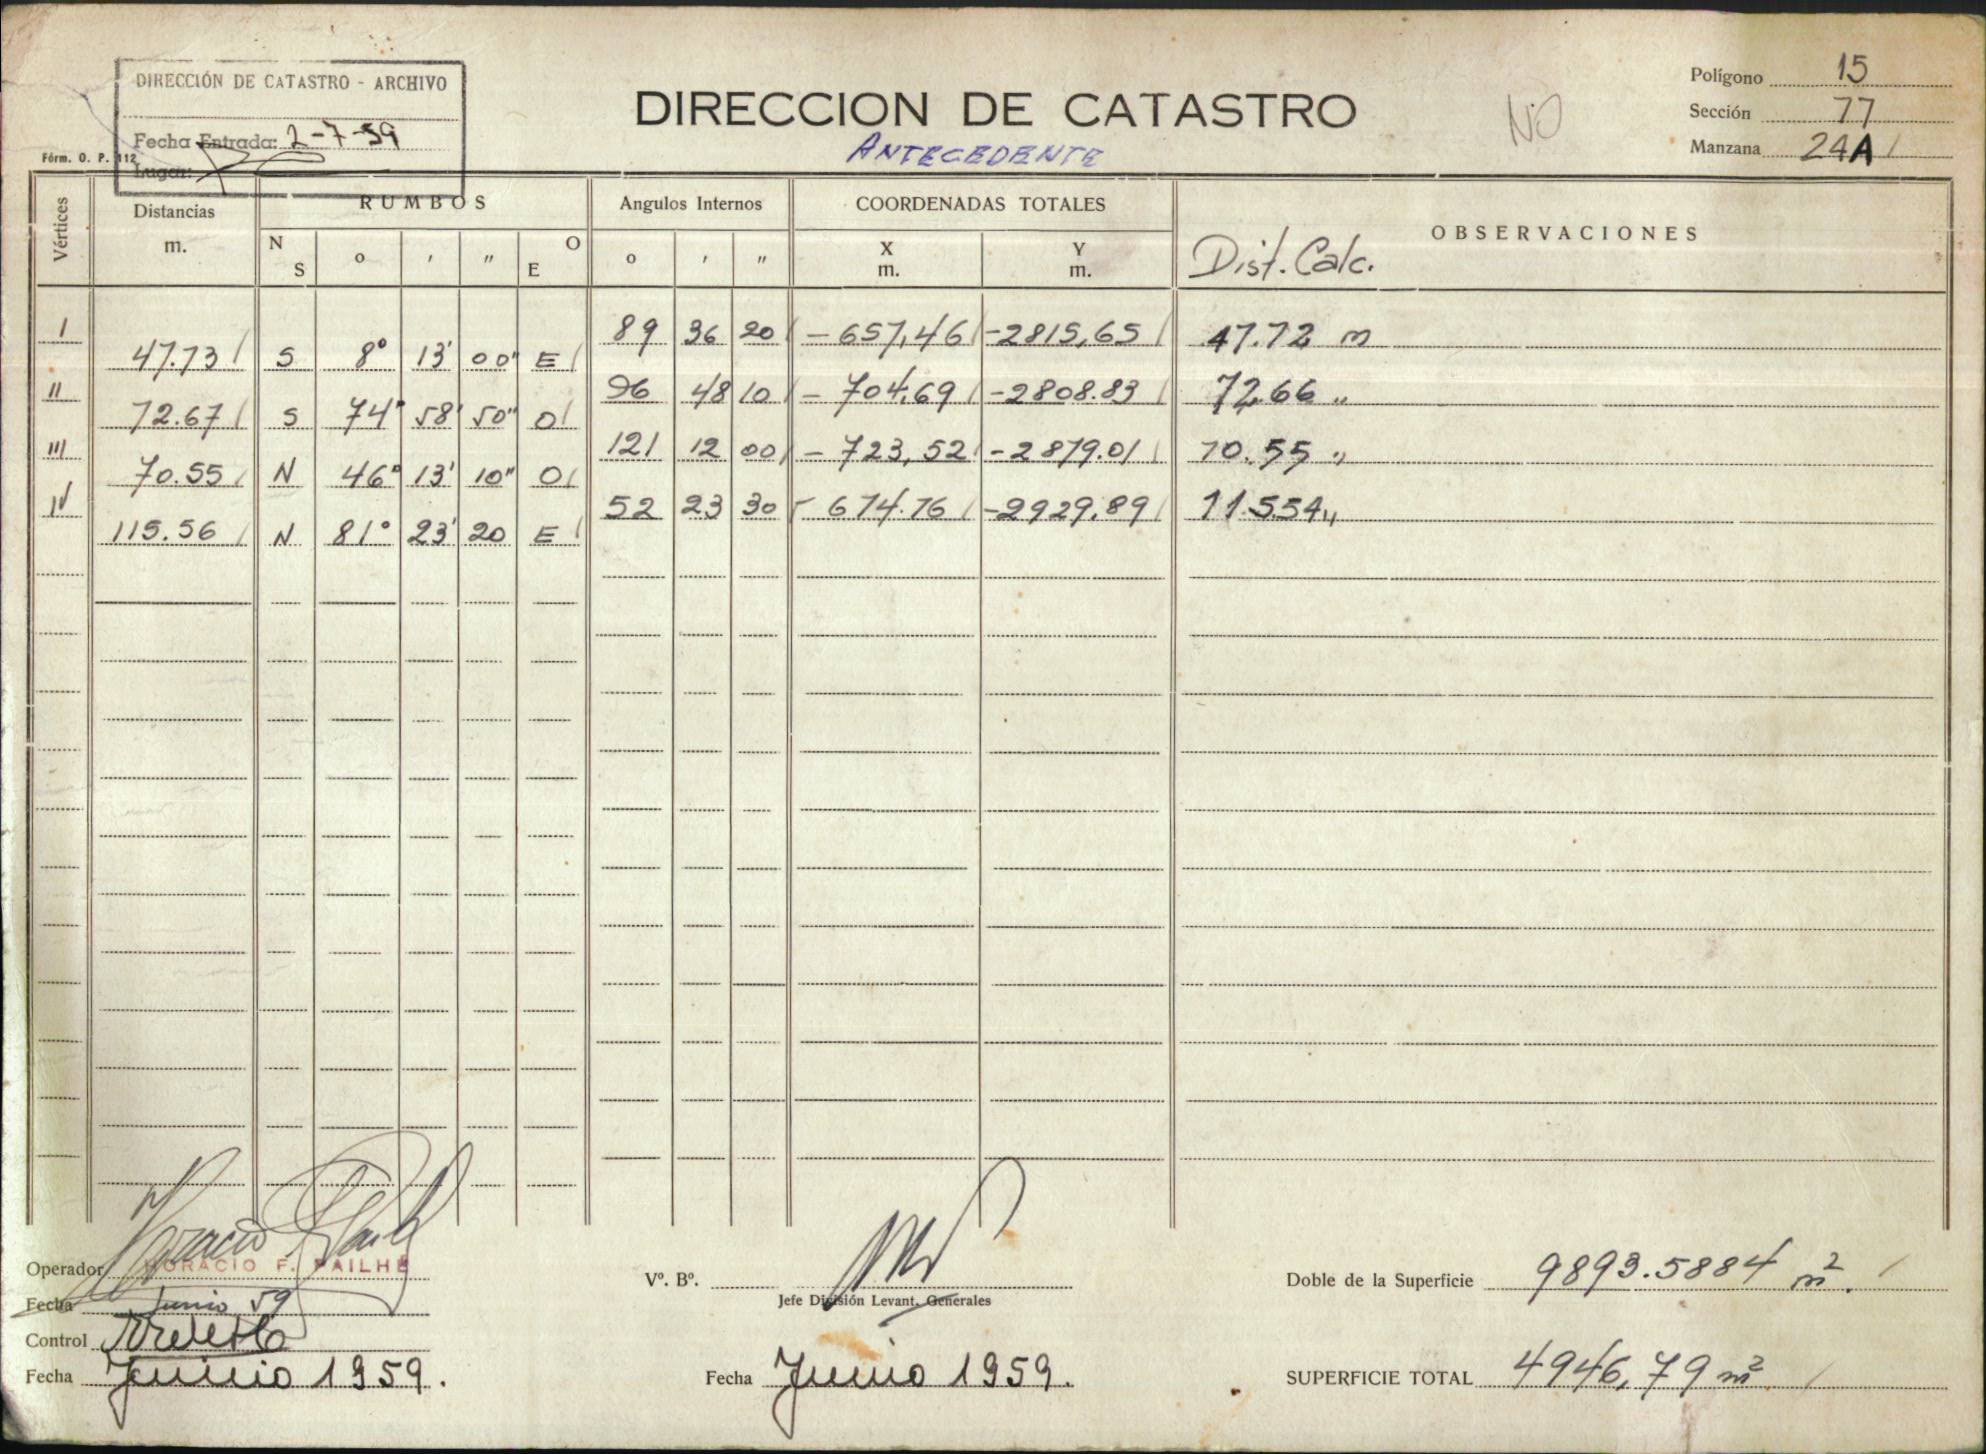 DIRECCIÓN DE CATASTRO - ARCHIVO
Fecha Entrada: 2-7-59
Lugar:
Fórm. O. P. 112
DIRECCION DE CATASTRO
ANTECEDENTE
NO
Polígono 15
Sección 77
Manzana 24A
Vértices Distancias m. RUMBOS Angulos Internos COORDENADAS TOTALES OBSERVACIONES
N S ° ' " O E ° ' " X m. Y m. Dist. Calc.
I 89 36 20 -657,46 -2815,65 47.72 m
47.73 S 8° 13' 00" E
II 96 48 10 - 704.69 -2808.83 72.66 "
72.67 S 74° 58' 50" O
III 121 12 00 - 723,52 -2879.01 70.55 "
70.55 N 46° 13' 10" O
IV 52 23 30 - 674.76 -2929.89 115.54 "
115.56 N 81° 23' 20 E
Operador HORACIO F. PAILHÉ
Fecha Junio 59
Control
Fecha Junio 1959.
Vº. Bº.
Jefe División Levant. Generales
Fecha Junio 1959.
Doble de la Superficie 9893.5884 m².
SUPERFICIE TOTAL 4946,79 m²